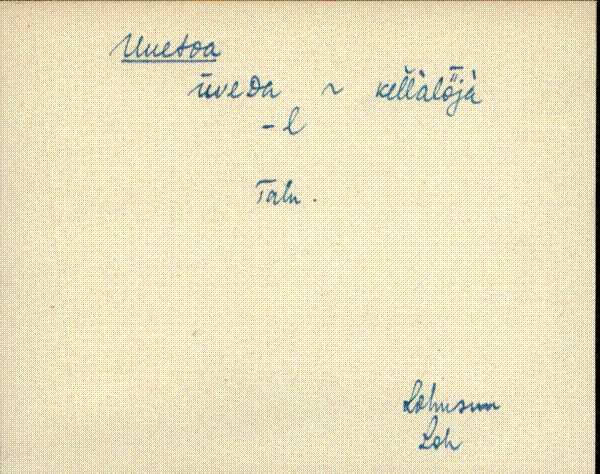 Uuetoa
ūveda ~ kell̆ălȫjà
- l
Talu.
Lohusuu
Loh